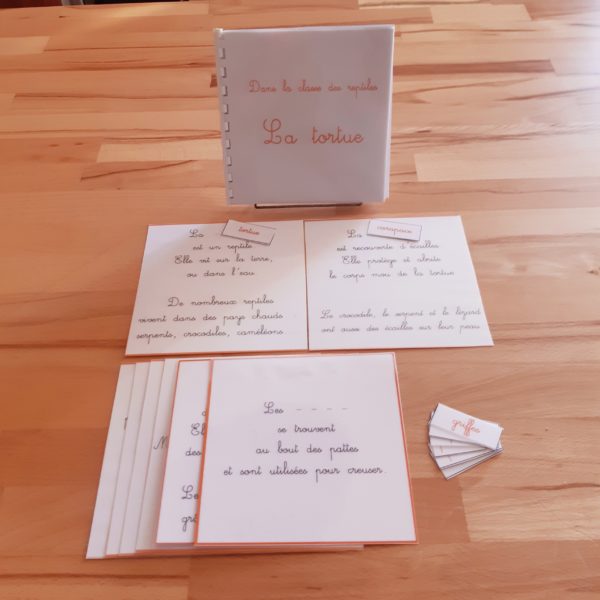 Dans la classe des reptiles
La tortue
La tortue
est un reptile.
Elle vit sur la terre,
ou dans l'eau.
De nombreux reptiles
vivent dans des pays chauds
serpents, crocodiles, caméléons
La carapace
est recouverte d'écailles.
Elle protège et abrite
le corps mou de la tortue
Le crocodile, le serpent et le lézard
ont aussi des écailles sur leur peau
Les _ _ _ _
se trouvent
au bout des pattes
et sont utilisées pour creuser.
El
des
Le
gr
griffes